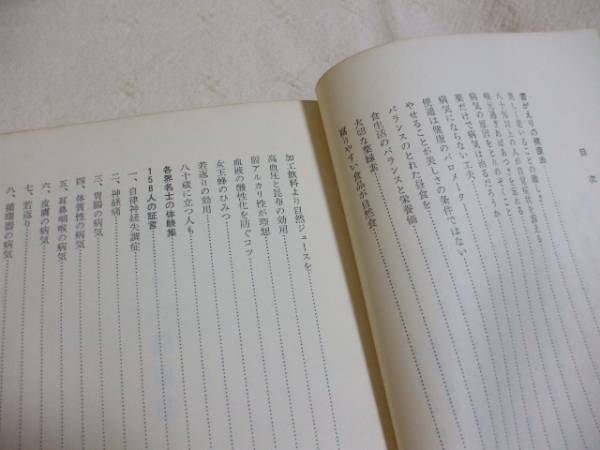 目次
若がえりの健康法
美しく老いることの難しさ
八十％以上の人が自覚症状を訴える
病気の原因をとりのぞくこと
薬だけで病気は治るだろうか
病気にならない工夫
便通は健康のバロメーター
やせることが美しさの条件ではない
バランスのとれた昼食を
食生活のバランスと栄養価
大切な葉緑素
腐りやすい食品が自然食
加工飲料より自然ジュースを
高血圧と昆布の効用
弱アルカリ性が理想
血液の酸性化を防ぐコツ
女王蜂のひみつ
若返りの効用
八十歳に立つ人も
各界名士の体験集
158人の証言
一、自律神経失調症
二、神経痛
三、胃腸の病気
四、体質性の病気
五、耳鼻咽喉の病気
六、皮膚の病気
七、若返り
八、循環器の病気